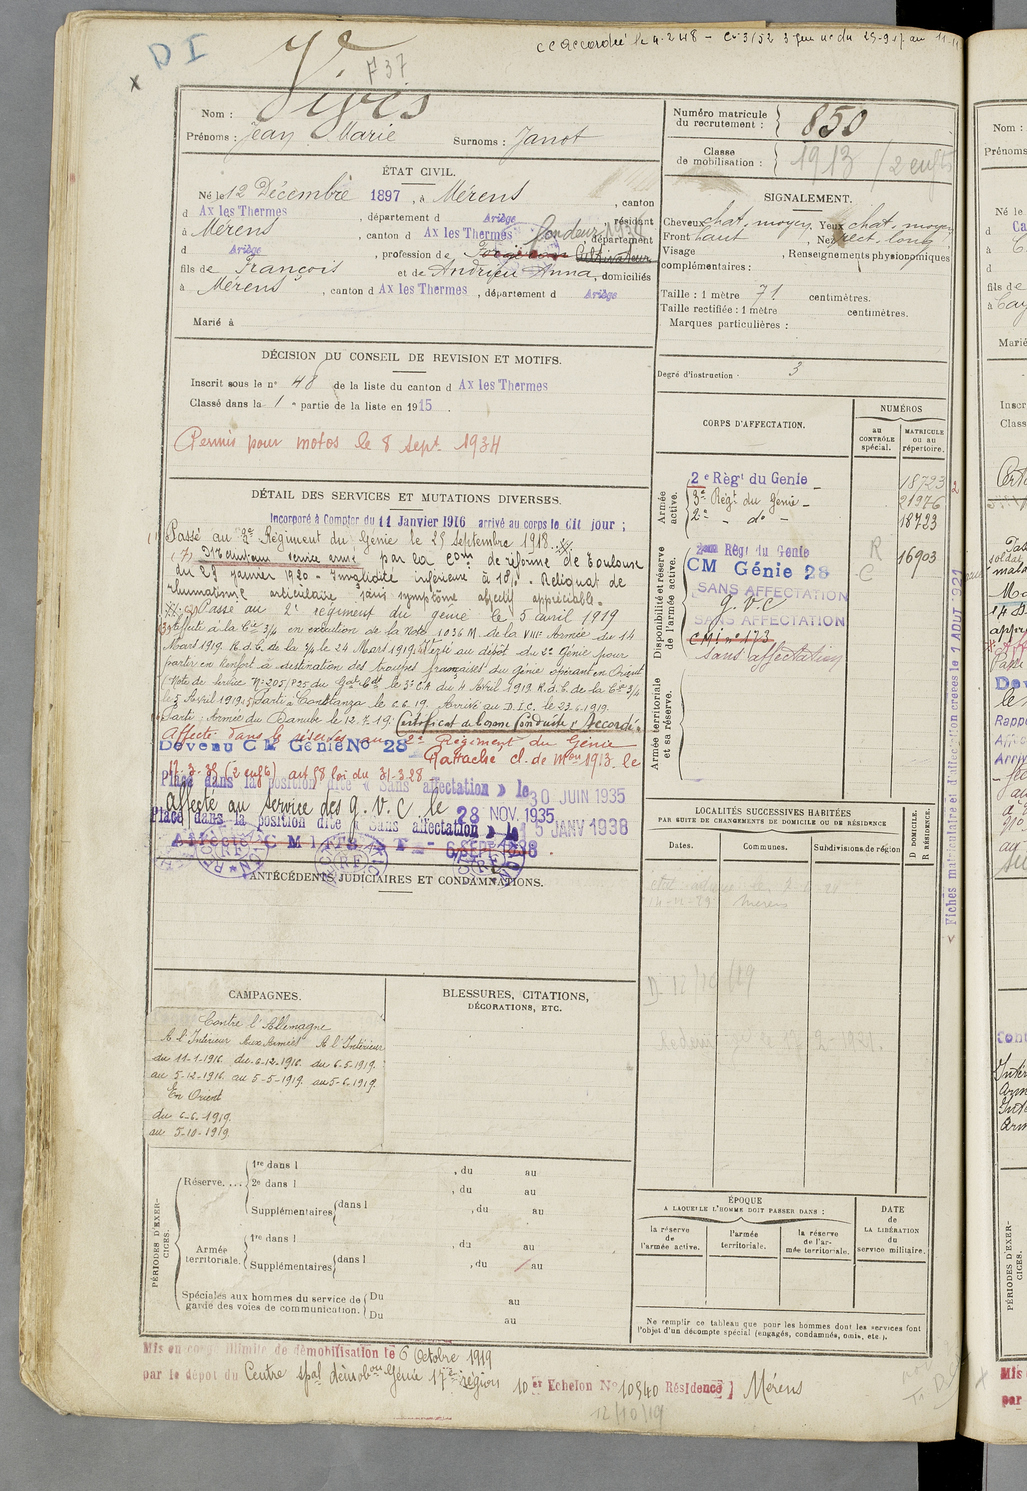 D I
F 37
CC accordée le 4.2.48 -
x
Nom : Vivès
Prénoms : Jean Marie Surnoms : Janot
Numéro matricule du recrutement : 850
Classe de mobilisation : 1913 / 2 enfts
ÉTAT CIVIL.
Né le 12 Décembre 1897, à Mérens, canton
d Ax les Thermes, département d Ariège, résidant
à Mérens, canton d Ax les Thermes, département
d Ariège, profession de Cultivateur
fils de François et de Andrieu Anna, domiciliés
à Mérens, canton d Ax les Thermes, département d Ariège
Marié à
SIGNALEMENT.
Cheveux chat. moyen Yeux chat. moyen
Front haut, Nez rect. long
Visage, Renseignements physionomiques
complémentaires :
Taille : 1 mètre 71 centimètres.
Taille rectifiée : 1 mètre centimètres.
Marques particulières :
Degré d'instruction : 3
DÉCISION DU CONSEIL DE REVISION ET MOTIFS.
Inscrit sous le n° 48 de la liste du canton d Ax les Thermes
Classé dans la 1e partie de la liste en 1915.
Permis pour motos le 8 sept. 1934
CORPS D'AFFECTATION.
NUMÉROS
au CONTRÔLE spécial.
MATRICULE ou au répertoire.
Armée active.
2e Règt du Genie - 18723
3e Régt du Génie - 21976
2e - do - 18723
Disponibilité et réserve de l'armée active.
Règt du Genie R 16903
CM Génie 28 C
SANS AFFECTATION
G.V.C
SANS AFFECTATION
CMI n° 173
Sans affectation
Armée territoriale et sa réserve.
DÉTAIL DES SERVICES ET MUTATIONS DIVERSES.
Incorporé à Compter du 11 Janvier 1916 arrivé au corps le dit jour ;
Passé au 3e Régiment du Génie le 25 septembre 1918.
Maintenu service armé par la Com de réforme de Toulouse
du 29 janvier 1920 - Invalidité inférieure à 10% - Reliquat de
rhumatisme articulaire sans symptôme objectif appréciable.
Passé au 2e régiment du génie le 5 avril 1919
Affecté à la Cie 3/4 en exécution de la Note 1036 M. de la VIIIe Armée du 14
Mars 1919. R.d.C. de la 3/4 le 24 Mars 1919. au dépôt du 2e Génie pour
partir en Renfort à destination des troupes françaises du Génie opérant en Orient
le 5 Avril 1919. Parti à Constanza le 6.6.19. Arrivé au D.I.C. le 23.6.1919.
Parti : Armée du Danube le 12.7.19. Certificat de bonne Conduite : Accordé.
Affecté dans la réserve au 2e Régiment du Génie
Devenu CM Génie No 28 Rattaché cl. de Mon 1913. le
(2 enfts) art 58 loi du 31-3-28
Placé dans la position dite « Sans affectation » le 30 JUIN 1935
Affecté au Service des G.V.C. le 28 NOV. 1935
Placé dans la position dite « Sans affectation » le 15 JANV 1938
ANTÉCÉDENTS JUDICIAIRES ET CONDAMNATIONS.
LOCALITÉS SUCCESSIVES HABITÉES
PAR SUITE DE CHANGEMENTS DE DOMICILE OU DE RÉSIDENCE
Dates.
Communes.
Subdivisions de région
D DOMICILE.
R RÉSIDENCE.
Mérens
D 12/10/19
Fiches matriculaires et d'affectation créées le 1 AOUT 1921
CAMPAGNES.
Contre l'Allemagne
A l'Intérieur Aux Armées A l'Intérieur
du 11-1-1916. du 6-12-1916. du 6-5-1919.
au 5-12-1916. au 5-5-1919. au 5-6-1919.
En Orient
du 6-6-1919.
au 5-10-1919.
BLESSURES, CITATIONS,
DÉCORATIONS, ETC.
PÉRIODES D'EXERCICES.
Réserve....
1re dans l, du au
2e dans l, du au
Supplémentaires dans l, du au
Armée territoriale.
1re dans l, du au
Supplémentaires dans l, du au
Spéciales aux hommes du service de garde des voies de communication.
Du au
Du au
ÉPOQUE
A LAQUELLE L'HOMME DOIT PASSER DANS :
la réserve de l'armée active.
l'armée territoriale.
la réserve de l'armée territoriale.
DATE de LA LIBÉRATION du service militaire.
Ne remplir ce tableau que pour les hommes dont les services font
l'objet d'un décompte spécial (engagés, condamnés, omis, etc.).
Mis en congé illimité de démobilisation le 6 Octobre 1919
par le dépôt du Centre spal démobon Génie 17e région 10er Echelon No 10540 Résidence } Mérens
12/10/19